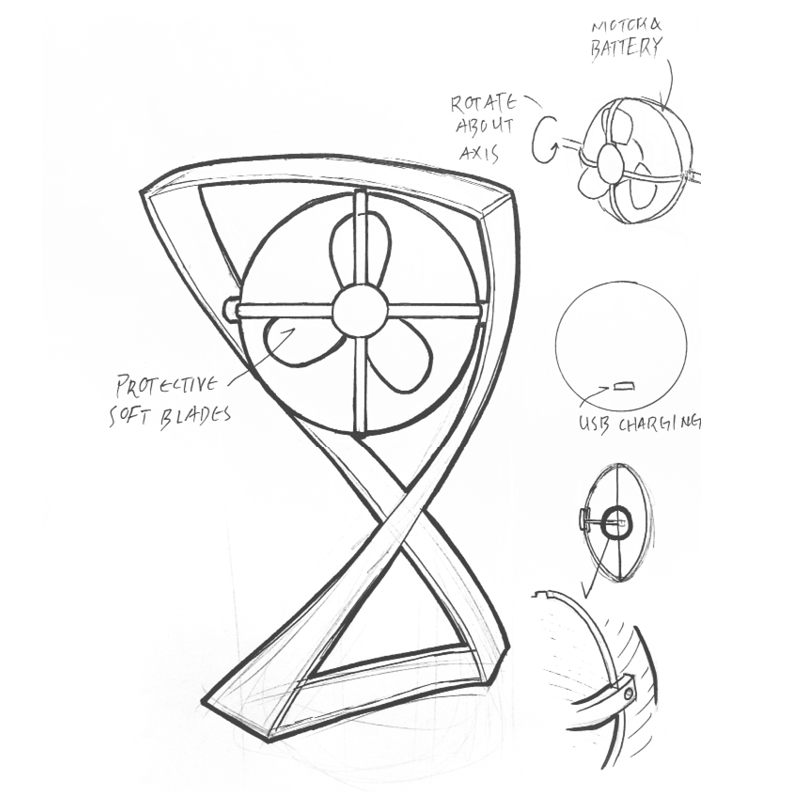 MOTOR &
BATTERY
ROTATE
ABOUT
AXIS
PROTECTIVE
SOFT BLADES
USB CHARGING